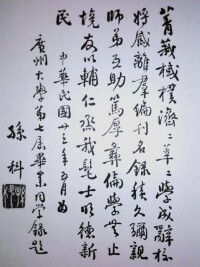 菁莪棫樸濟々莘々學成辭校
將感離羣編刊名錄積久彌親
師弟互助篤厚彝倫學無止
境友以輔仁烝我髦士明德新
民
中華民國廿三年五月為
廣州大學第七屆畢業同學錄題
孫科